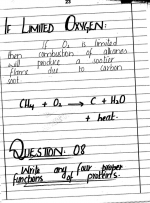 23
IF LIMITED OXYGEN:
If O₂ is limited
then combustion of alkanes
will produce a sootier
flame due to carbon
soot
CH₄ + O₂ → C + H₂O
+ heat.
QUESTION: 08
Write any four proper
functions of protiens.